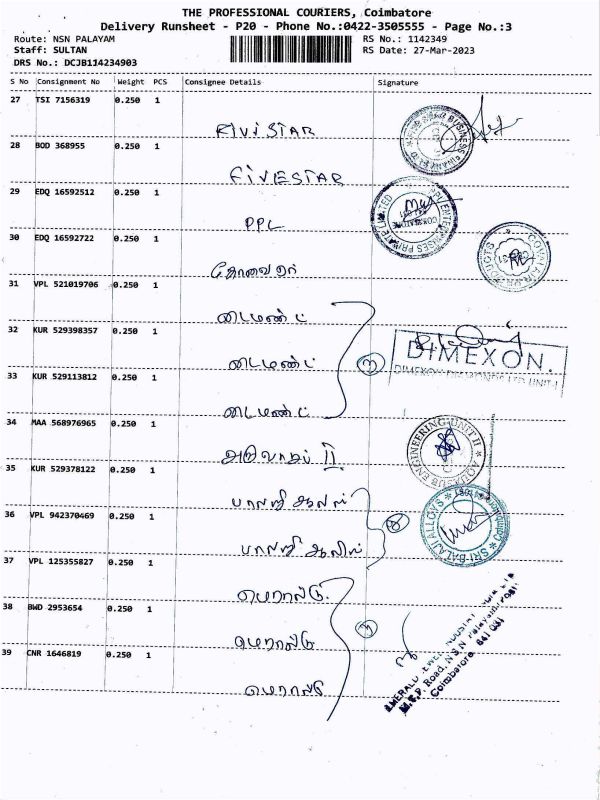 THE PROFESSIONAL COURIERS, Coimbatore
Delivery Runsheet - P20 - Phone No.:0422-3505555 - Page No.:3
Route: NSN PALAYAM
RS No.: 1142349
Staff: SULTAN
RS Date: 27-Mar-2023
DRS No.: DCJB114234903
S No Consignment No Weight PCS Consignee Details Signature
27 TSI 7156319 0.250 1
FIVISTAR
28 BOD 368955 0.250 1
FIVESTAR
29 EDQ 16592512 0.250 1
PPL
30 EDQ 16592722 0.250 1
31 VPL 521019706 0.250 1
டைமண்ட்
32 KUR 529398357 0.250 1
டைமண்ட்
DIMEXON.
33 KUR 529113812 0.250 1
டைமண்ட்
34 MAA 568976965 0.250 1
II
ENGINEERING UNIT II
35 KUR 529378122 0.250 1
பாலாஜி
36 VPL 942370469 0.250 1
பாலாஜி
SRI BALAJI ALLOYS
37 VPL 125355827 0.250 1
38 BWD 2953654 0.250 1
39 CNR 1646819 0.250 1
M.T.P. Road, N.S.N. Palayam
Coimbatore 641 031